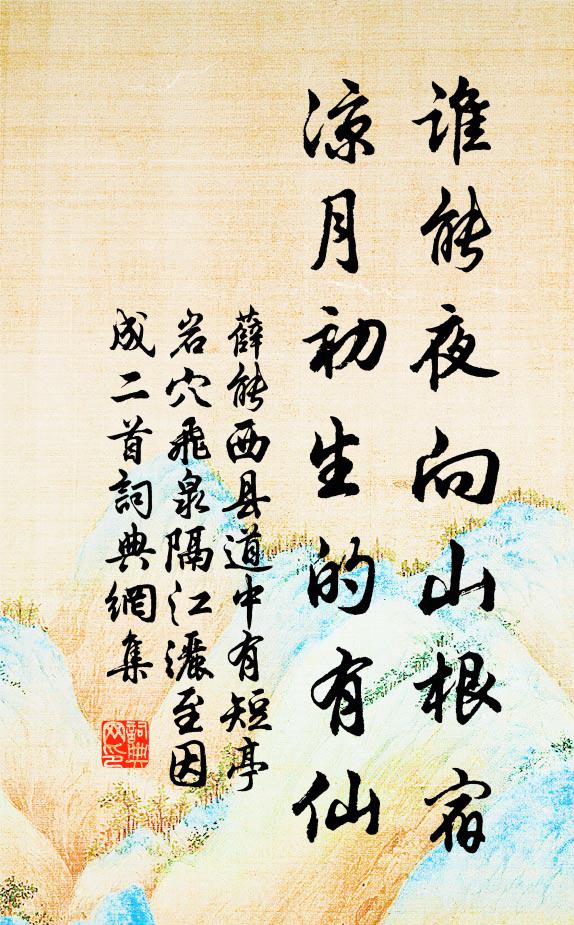 谁能夜向山根宿
凉月初生的有仙
薛能西县道中有短亭
岩穴飛泉隔江灑至因
成二首詞典網集
詞典網印